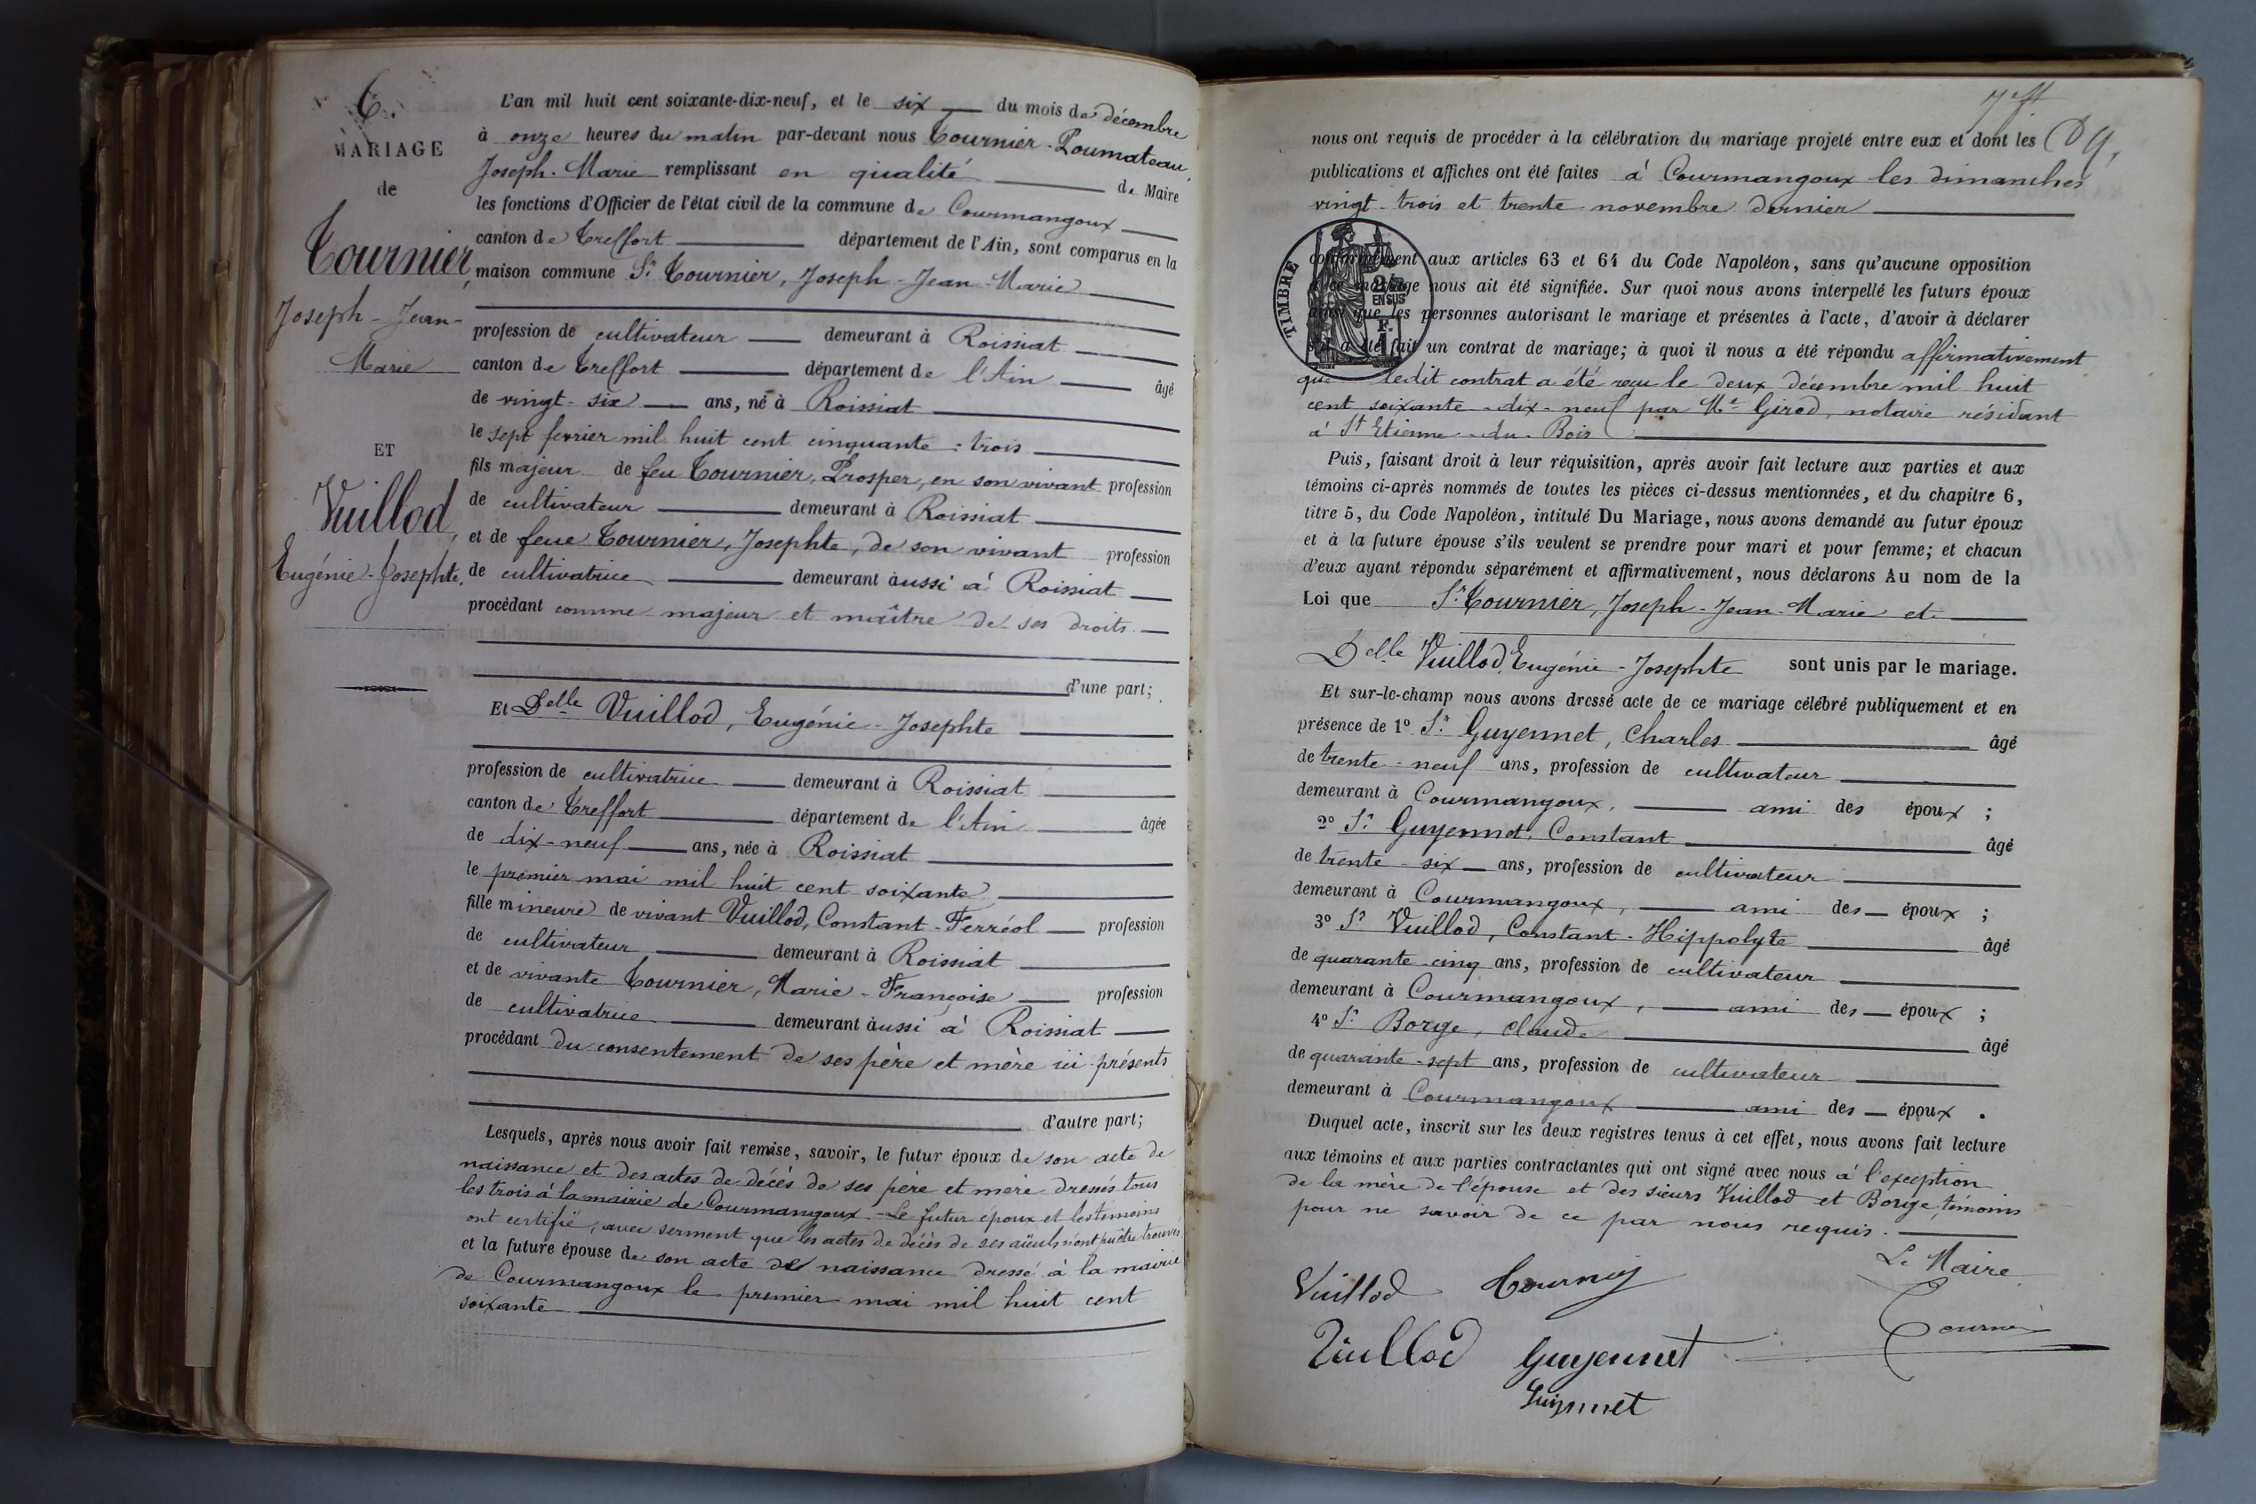 N° 6.
MARIAGE
de
Tournier,
Joseph-Jean-
Marie
ET
Vuillod,
Eugénie-Josephte,
L'an mil huit cent soixante-dix-neuf, et le six du mois de décembre
à onze heures du matin par-devant nous Tournier-Poumateau,
Joseph-Marie remplissant en qualité de Maire
les fonctions d'Officier de l'état civil de la commune de Courmangoux
canton de Treffort département de l'Ain, sont comparus en la
maison commune Sr. Tournier, Joseph-Jean-Marie
profession de cultivateur demeurant à Roissiat
canton de Treffort département de l'Ain âgé
de vingt-six ans, né à Roissiat
le sept fevrier mil huit cent cinquante-trois
fils majeur de feu Tournier, Prosper, en son vivant profession
de cultivateur demeurant à Roissiat
et de feue Tournier, Josephte, de son vivant profession
de cultivatrice demeurant aussi à Roissiat
procédant comme majeur et maître de ses droits.
d'une part;
Et Delle Vuillod, Eugénie-Josephte
profession de cultivatrice demeurant à Roissiat
canton de Treffort département de l'Ain âgée
de dix-neuf ans, née à Roissiat
le premier mai mil huit cent soixante
fille mineure de vivant Vuillod, Constant-Ferréol profession
de cultivateur demeurant à Roissiat
et de vivante Tournier, Marie-Françoise profession
de cultivatrice demeurant aussi à Roissiat
procédant du consentement de ses père et mère ici présents
d'autre part;
Lesquels, après nous avoir fait remise, savoir, le futur époux de son acte de
naissance et des actes de décès de ses père et mère dressés tous
les trois à la mairie de Courmangoux.-Le futur époux et les témoins
ont certifié, avec serment que les actes de décès de ses aïeuls n'ont pu être trouvés
et la future épouse de son acte de naissance dressé à la mairie
de Courmangoux le premier mai mil huit cent
soixante
89,
nous ont requis de procéder à la célébration du mariage projeté entre eux et dont les
publications et affiches ont été faites à Courmangoux les dimanches
vingt-trois et trente novembre dernier
TIMBRE
2/10
EN SUS
conformément aux articles 63 et 64 du Code Napoléon, sans qu'aucune opposition
à ce mariage nous ait été signifiée. Sur quoi nous avons interpellé les futurs époux
ainsi que les personnes autorisant le mariage et présentes à l'acte, d'avoir à déclarer
s'il a été fait un contrat de mariage; à quoi il nous a été répondu affirmativement
que ledit contrat a été reçu le deux décembre mil huit
cent soixante-dix-neuf par Me Girod, notaire résidant
à St Etienne-du-Bois
Puis, faisant droit à leur réquisition, après avoir fait lecture aux parties et aux
témoins ci-après nommés de toutes les pièces ci-dessus mentionnées, et du chapitre 6,
titre 5, du Code Napoléon, intitulé Du Mariage, nous avons demandé au futur époux
et à la future épouse s'ils veulent se prendre pour mari et pour femme; et chacun
d'eux ayant répondu séparément et affirmativement, nous déclarons Au nom de la
Loi que Sr. Tournier, Joseph-Jean-Marie et
Delle Vuillod, Eugénie-Josephte sont unis par le mariage.
Et sur-le-champ nous avons dressé acte de ce mariage célébré publiquement et en
présence de 1° Sr. Guyennet, Charles âgé
de trente-neuf ans, profession de cultivateur
demeurant à Courmangoux, ami des époux ;
2° Sr. Guyennet, Constant âgé
de trente-six ans, profession de cultivateur
demeurant à Courmangoux, ami des époux ;
3° Sr Vuillod, Constant-Hippolyte âgé
de quarante-cinq ans, profession de cultivateur
demeurant à Courmangoux, ami des époux ;
4° Sr. Borge, Claude âgé
de quarante-sept ans, profession de cultivateur
demeurant à Courmangoux ami des époux .
Duquel acte, inscrit sur les deux registres tenus à cet effet, nous avons fait lecture
aux témoins et aux parties contractantes qui ont signé avec nous à l'exception
de la mère de l'épouse et des sieurs Vuillod et Borge, témoins
pour ne savoir de ce par nous requis.
Le Maire
Vuillod Tournier
Tournier
Vuillod Guyennet
Guyennet